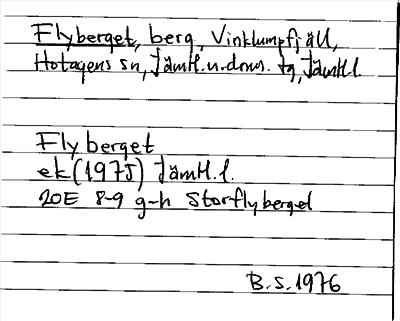 Flyberget, berg, Vinklumpfjäll,
Hotagens sn, Jämtl.n.doms. tg, Jämtl.l.
Flyberget
ek (1975) Jämtl.l.
20E 8-9 g-h Storflyberget
B.S. 1976